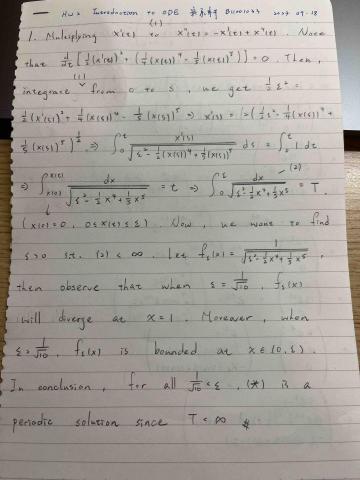 — HW2 Introduction to ODE B11201033 2024-09-18
1. Multiplying x'(t) to x''(t) = -x³(t) + x⁴(t). Note
that d/dt [ 1/2 (x'(t))² + ( 1/4 (x(t))⁴ - 1/5 (x(t))⁵ ) ] = 0. Then,
integrate (1) from 0 to s, we get 1/2 ε² =
1/2 (x'(s))² + 1/4 (x(s))⁴ - 1/5 (x(s))⁵ ⇒ x'(s) =
⇒ ∫₀ᵗ x'(s) / √(ε² - 1/2 (x(s))⁴ + 2/5 (x(s))⁵) ds = ∫₀ᵗ 1 dt
⇒ ∫ₓ₍₀₎ˣ⁽ᵗ⁾ dx / √(ε² - 1/2 x⁴ + 2/5 x⁵) = t ⇒ dx / √(ε² - 1/2 x⁴ + 2/5 x⁵) = T. (2)
(x(0) = 0, 0 ≤ x(t) ≤ ξ). Now, we want to find
s.t. (2) < ∞. Let fε(x) = 1 / √(ε² - 1/2 x⁴ + 2/5 x⁵),
then observe that when ε = 1/√10, fε(x)
will diverge at x = 1. Moreover, when
1/√10, fε(x) is bounded at x ∈ (0, ξ).
In conclusion, for all 1/√10 < ε, (*) is a
periodic solution since T < ∞ #